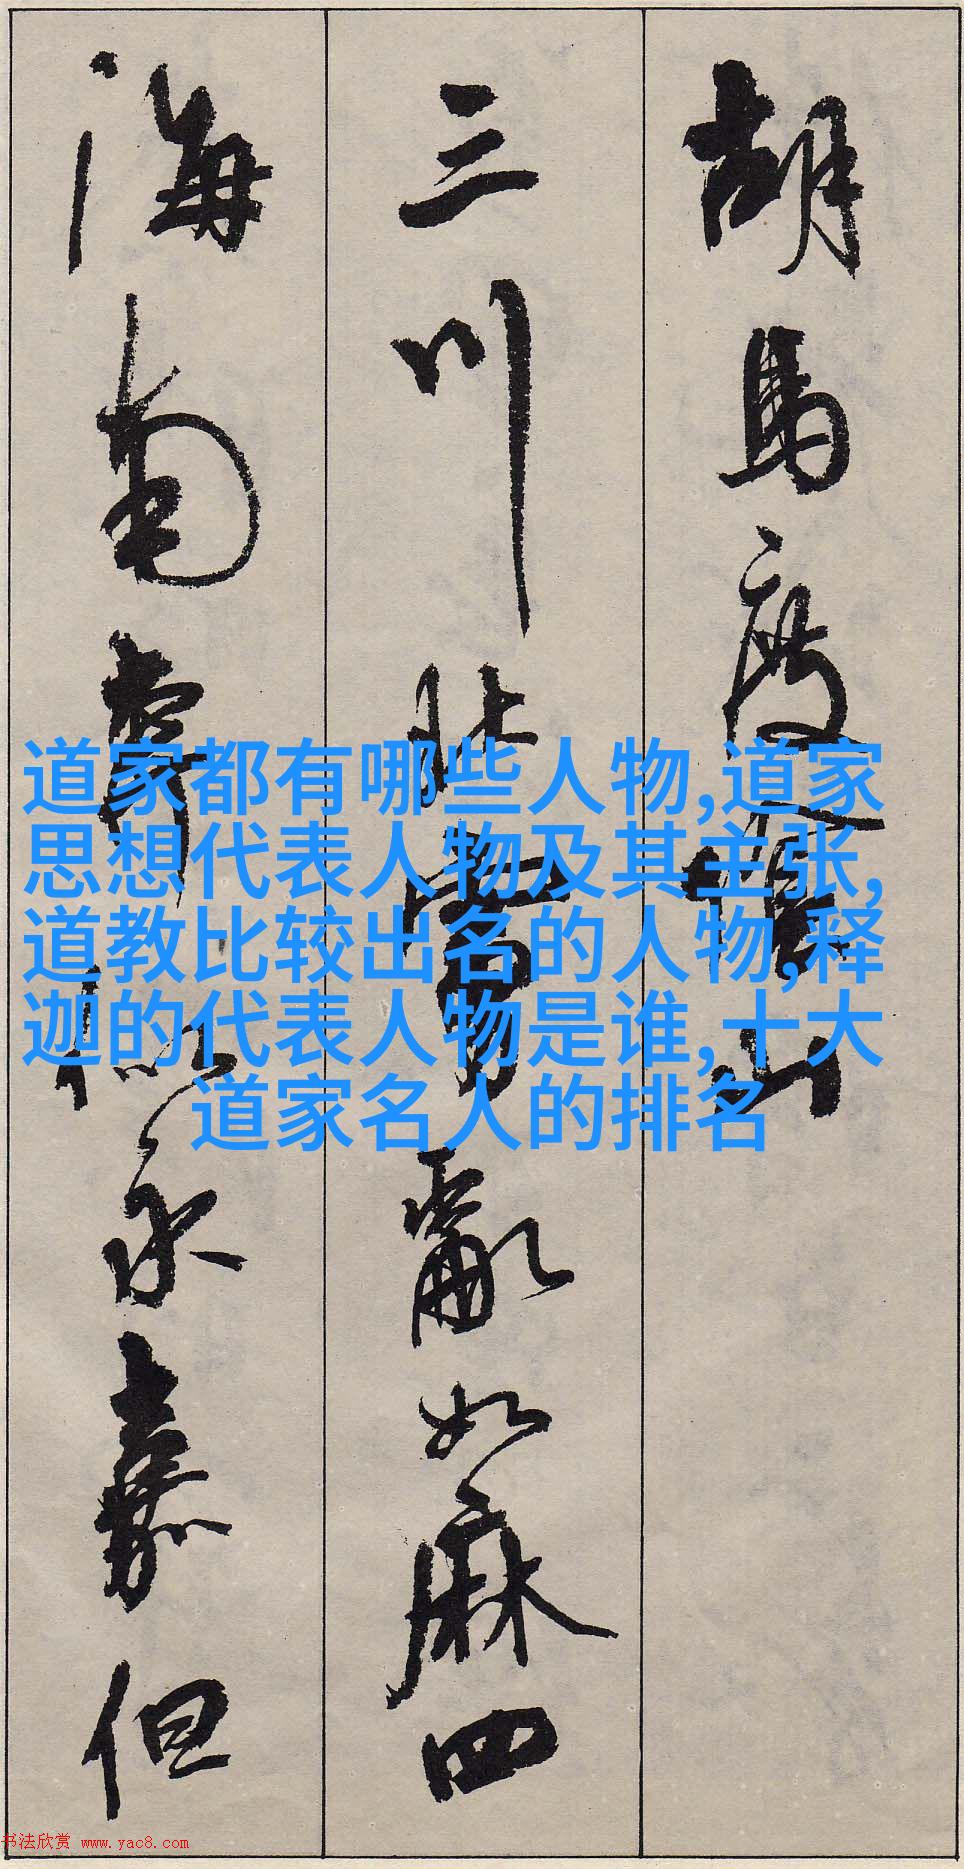 胡馬度
山
三川北虜亂如麻四
海南奔似永嘉但
道家都有哪些人物,道家
思想代表人物及其主张,
道教比较出名的人物,释
迦的代表人物是谁,十大
道家名人的排名
书法欣赏 www.yac8.com